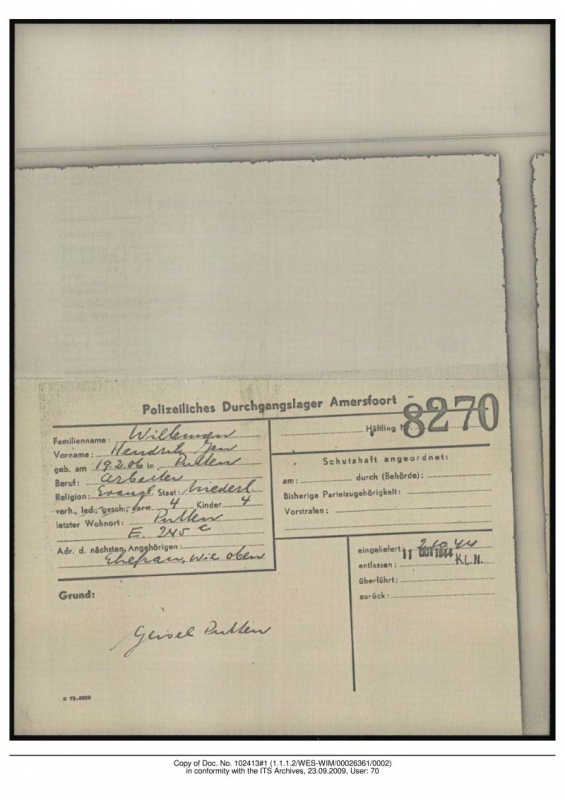 Polizeiliches Durchgangslager Amersfoort
Häftling N 8270
Familienname:
Vorname: Hendrik Jan
geb. am 19.2.06 in Putten
Beruf: Arbeiter
Religion: Evangl. Staat: Niederl.
verh., led., gesch., verw. 4 Kinder 4
letzter Wohnort: Putten
E. 245 c
Adr. d. nächsten Angehörigen
Ehefrau, wie oben
Schutzhaft angeordnet:
am: durch (Behörde):
Bisherige Parteizugehörigkeit:
Vorstrafen:
eingeliefert: 2.10.44
entlassen: 11 OCT 1944 K.L.N.
überführt:
zurück:
Grund:
Geisel Putten
Copy of Doc. No. 102413#1 (1.1.1.2/WES-WIM/00026361/0002)
in conformity with the ITS Archives, 23.09.2009, User: 70